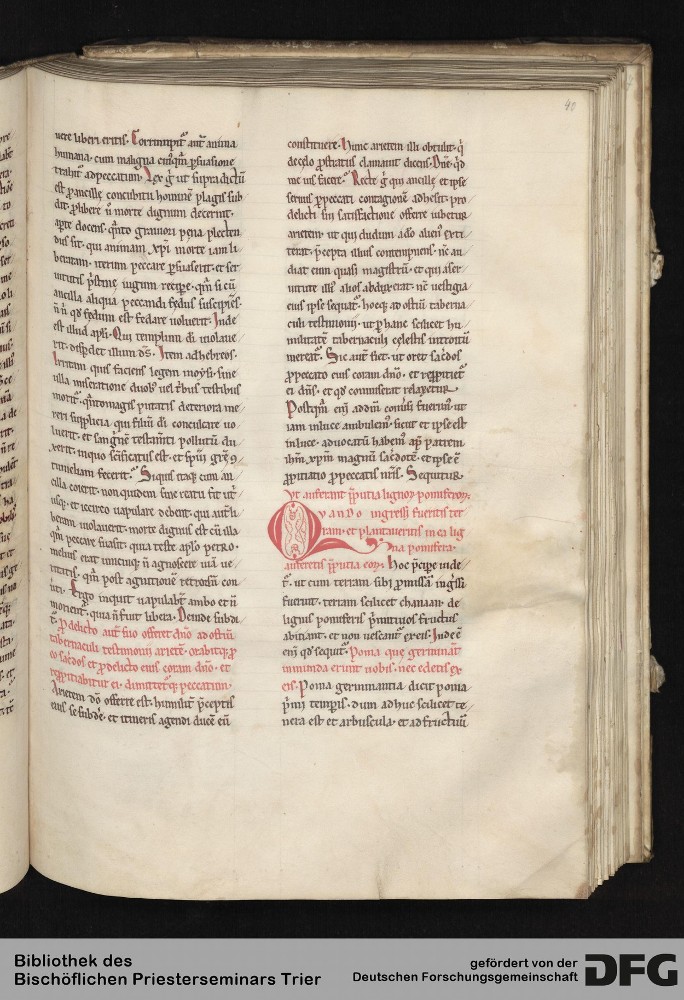 40
uere liberi eritis. Corrumpit aut anima
humana. cum maligna
trahit ad peccatum. Lex g ut supra dictu
est p ancille concubitu hominē plagis sub
dit. plibere n morte dignum decernit.
apte docens. qnto grauiori pena plecten
dus sit. qui animam xpi morte iam li
beratam. iterum peccare psuaserit. et ser
uitutis pstine iugum recipe. qm si cū
ancilla aliqua peccandi fedus suscipies.
n n qd fedum est fedare uoluerit. Inde
est illud apli. Qui templum di uiolaue
rit. disperdet illum ds. Item ad hebreos.
Irritum quis faciens legem moysi. sine
ulla miseratione duob uel trbus testibus
morit. qntomagis putatis deteriora me
reri supplicia. qui filium di conculcaue
uerit. et sangne testamti pollutū du
xerit. in quo scificatus est. et spui gre
tumeliam fecerit. Siquis itaq cum an
cilla coierit. non quidem sine reatu fit
usq. et iccirco uapulare debent. qui aut li
beram uiolauerit. morte dignus est cū illa
qm peccare suasit. quia teste aplo petro.
melius erat unicuiq n agnoscere uiā ue
ritatis. qm post agnitionē retrorsū con
uti. Ergo inquit uapulabt ambo et n
morient. quia n fuit libera. Deinde subdi
t. p delicto aut suo offeret dno ad ostiū
tabernaculi testimonii arietē. orabitq p
eo sacdos et p delicto eius coram dno. et
repitiabitur ei. dimitteturq peccatum.
Arietem dō offerre est. humilit pceptis
eius se subde. et itineris agendi ducē eū
constituere. Hunc arietem illi obtulit. q
de celo pstratus clamauit dicens. Dne. qd
me uis facere. Recte g qui ancille et ipse
seruus p peccati contagionē adhesit. pro
delicti sui satisfactione offerre iubetur
arietem. ut qui dudum a do alien exti
terat. pcepta illius contempnens. nc au
diat eum quasi magistrū. et qui a ser
uitute illi alios abduxerat. nc uestigia
eius ipse sequat. hoc ad ostiū taberna
culi testimonii. ut p hanc scilicet hu
militatē tabernaculi celestis introitū
mereat. Sic aut fiet. ut oret sacdos
p peccato eius coram dno. et repitiet
ei dns. et qd commiserat relaxetur.
Postqm eni addm conusi fuerim. ut
iam in luce ambulem. sicut et ipse est
in luce. aduocatū habem ap patrem
ihm xpm magnū sacdotē. et ipse ē
ppitiatio p peccatis nris. Sequitur.
Ut auferant pputia lignor pomiferor.
Quando ingressi fueritis ter
ram. et plantaueritis in ea lig
na pomifera.
auferetis pputia eor. Hoc pcipe uide
t. ut cum terram sibi pmissā ingssi
fuerint. terram scilicet chanaan. de
lignis pomiferis pmitiuos fructus
abitiant. et non uescant ex eis. Inde ē
eni qd sequit. Poma que germinant
inmunda erunt uobis. nec edetis ex
eis. Poma germinantia dicit poma
pmi tempis. dum adhuc scilicet te
nera est et arbuscula. et ad fructum
Bibliothek des
Bischöflichen Priesterseminars Trier
gefördert von der
Deutschen Forschungsgemeinschaft
DFG